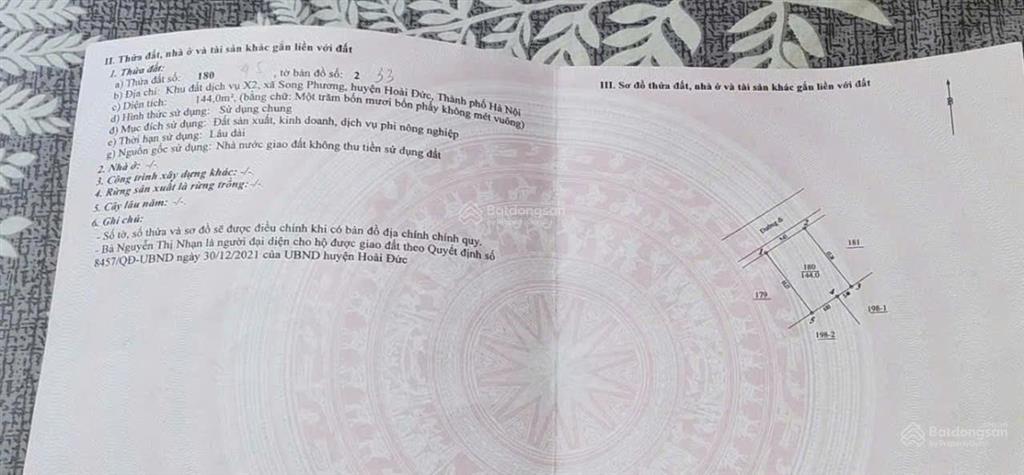 II. Thửa đất, nhà ở và tài sản khác gắn liền với đất
1. Thửa đất:
a) Thửa đất số: 180 95, tờ bản đồ số: 2 33
b) Địa chỉ: Khu đất dịch vụ X2, xã Song Phương, huyện Hoài Đức, Thành phố Hà Nội
c) Diện tích: 144,0m², (bằng chữ: Một trăm bốn mươi bốn phẩy không mét vuông)
d) Hình thức sử dụng: Sử dụng chung
đ) Mục đích sử dụng: Đất sản xuất, kinh doanh, dịch vụ phi nông nghiệp
e) Thời hạn sử dụng: Lâu dài
g) Nguồn gốc sử dụng: Nhà nước giao đất không thu tiền sử dụng đất
2. Nhà ở: -/-
3. Công trình xây dựng khác: -/-.
4. Rừng sản xuất là rừng trồng: -/-
5. Cây lâu năm: -/-.
6. Ghi chú:
- Số tờ, số thửa và sơ đồ sẽ được điều chỉnh khi có bản đồ địa chính chính quy.
- Bà Nguyễn Thị Nhạn là người đại diện cho hộ được giao đất theo Quyết định số
8457/QĐ-UBND ngày 30/12/2021 của UBND huyện Hoài Đức
III. Sơ đồ thửa đất, nhà ở và tài sản khác gắn liền với đất
B
Đường 6
1
2
181
180
144.0
179
4
3
5
198-1
198-2
Batdongsan
Batdongsan
by PropertyGuru